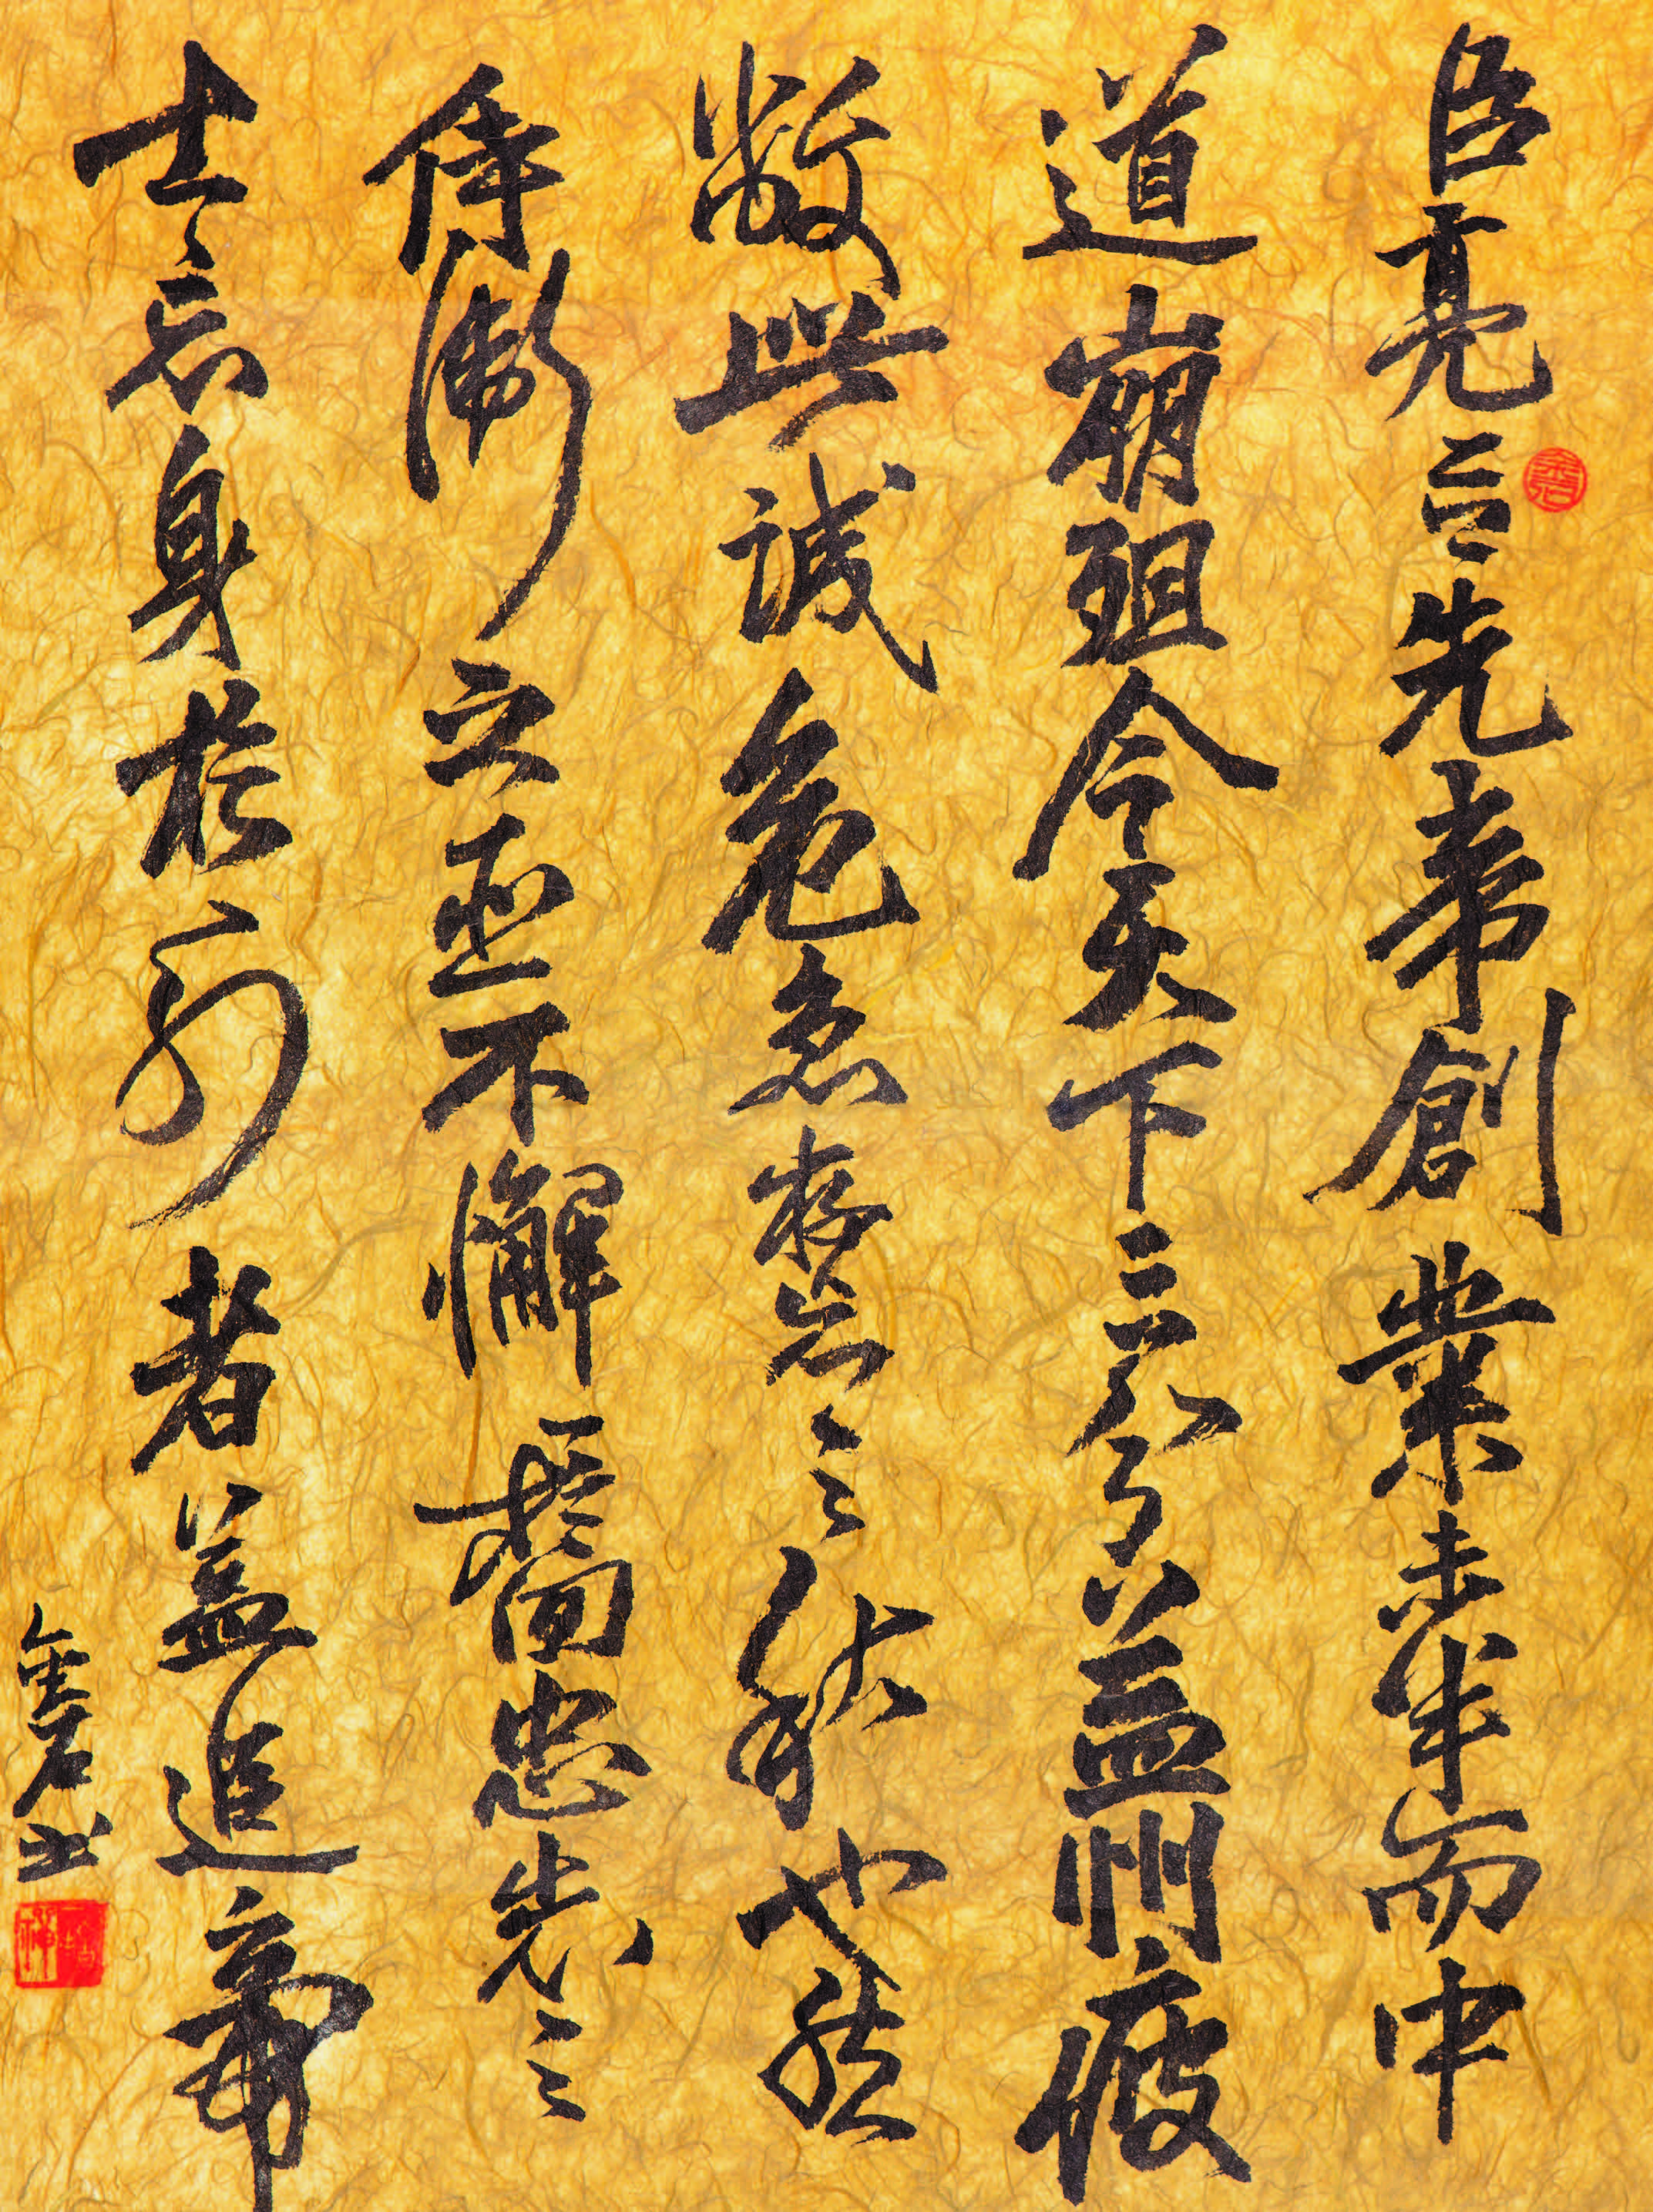 臣亮言先帝創業未半而中
道崩殂今天下三分益州疲
敝此誠危急存亡之秋也然
侍衛之臣不懈於內忠志之
士忘身於外者蓋追帝
书